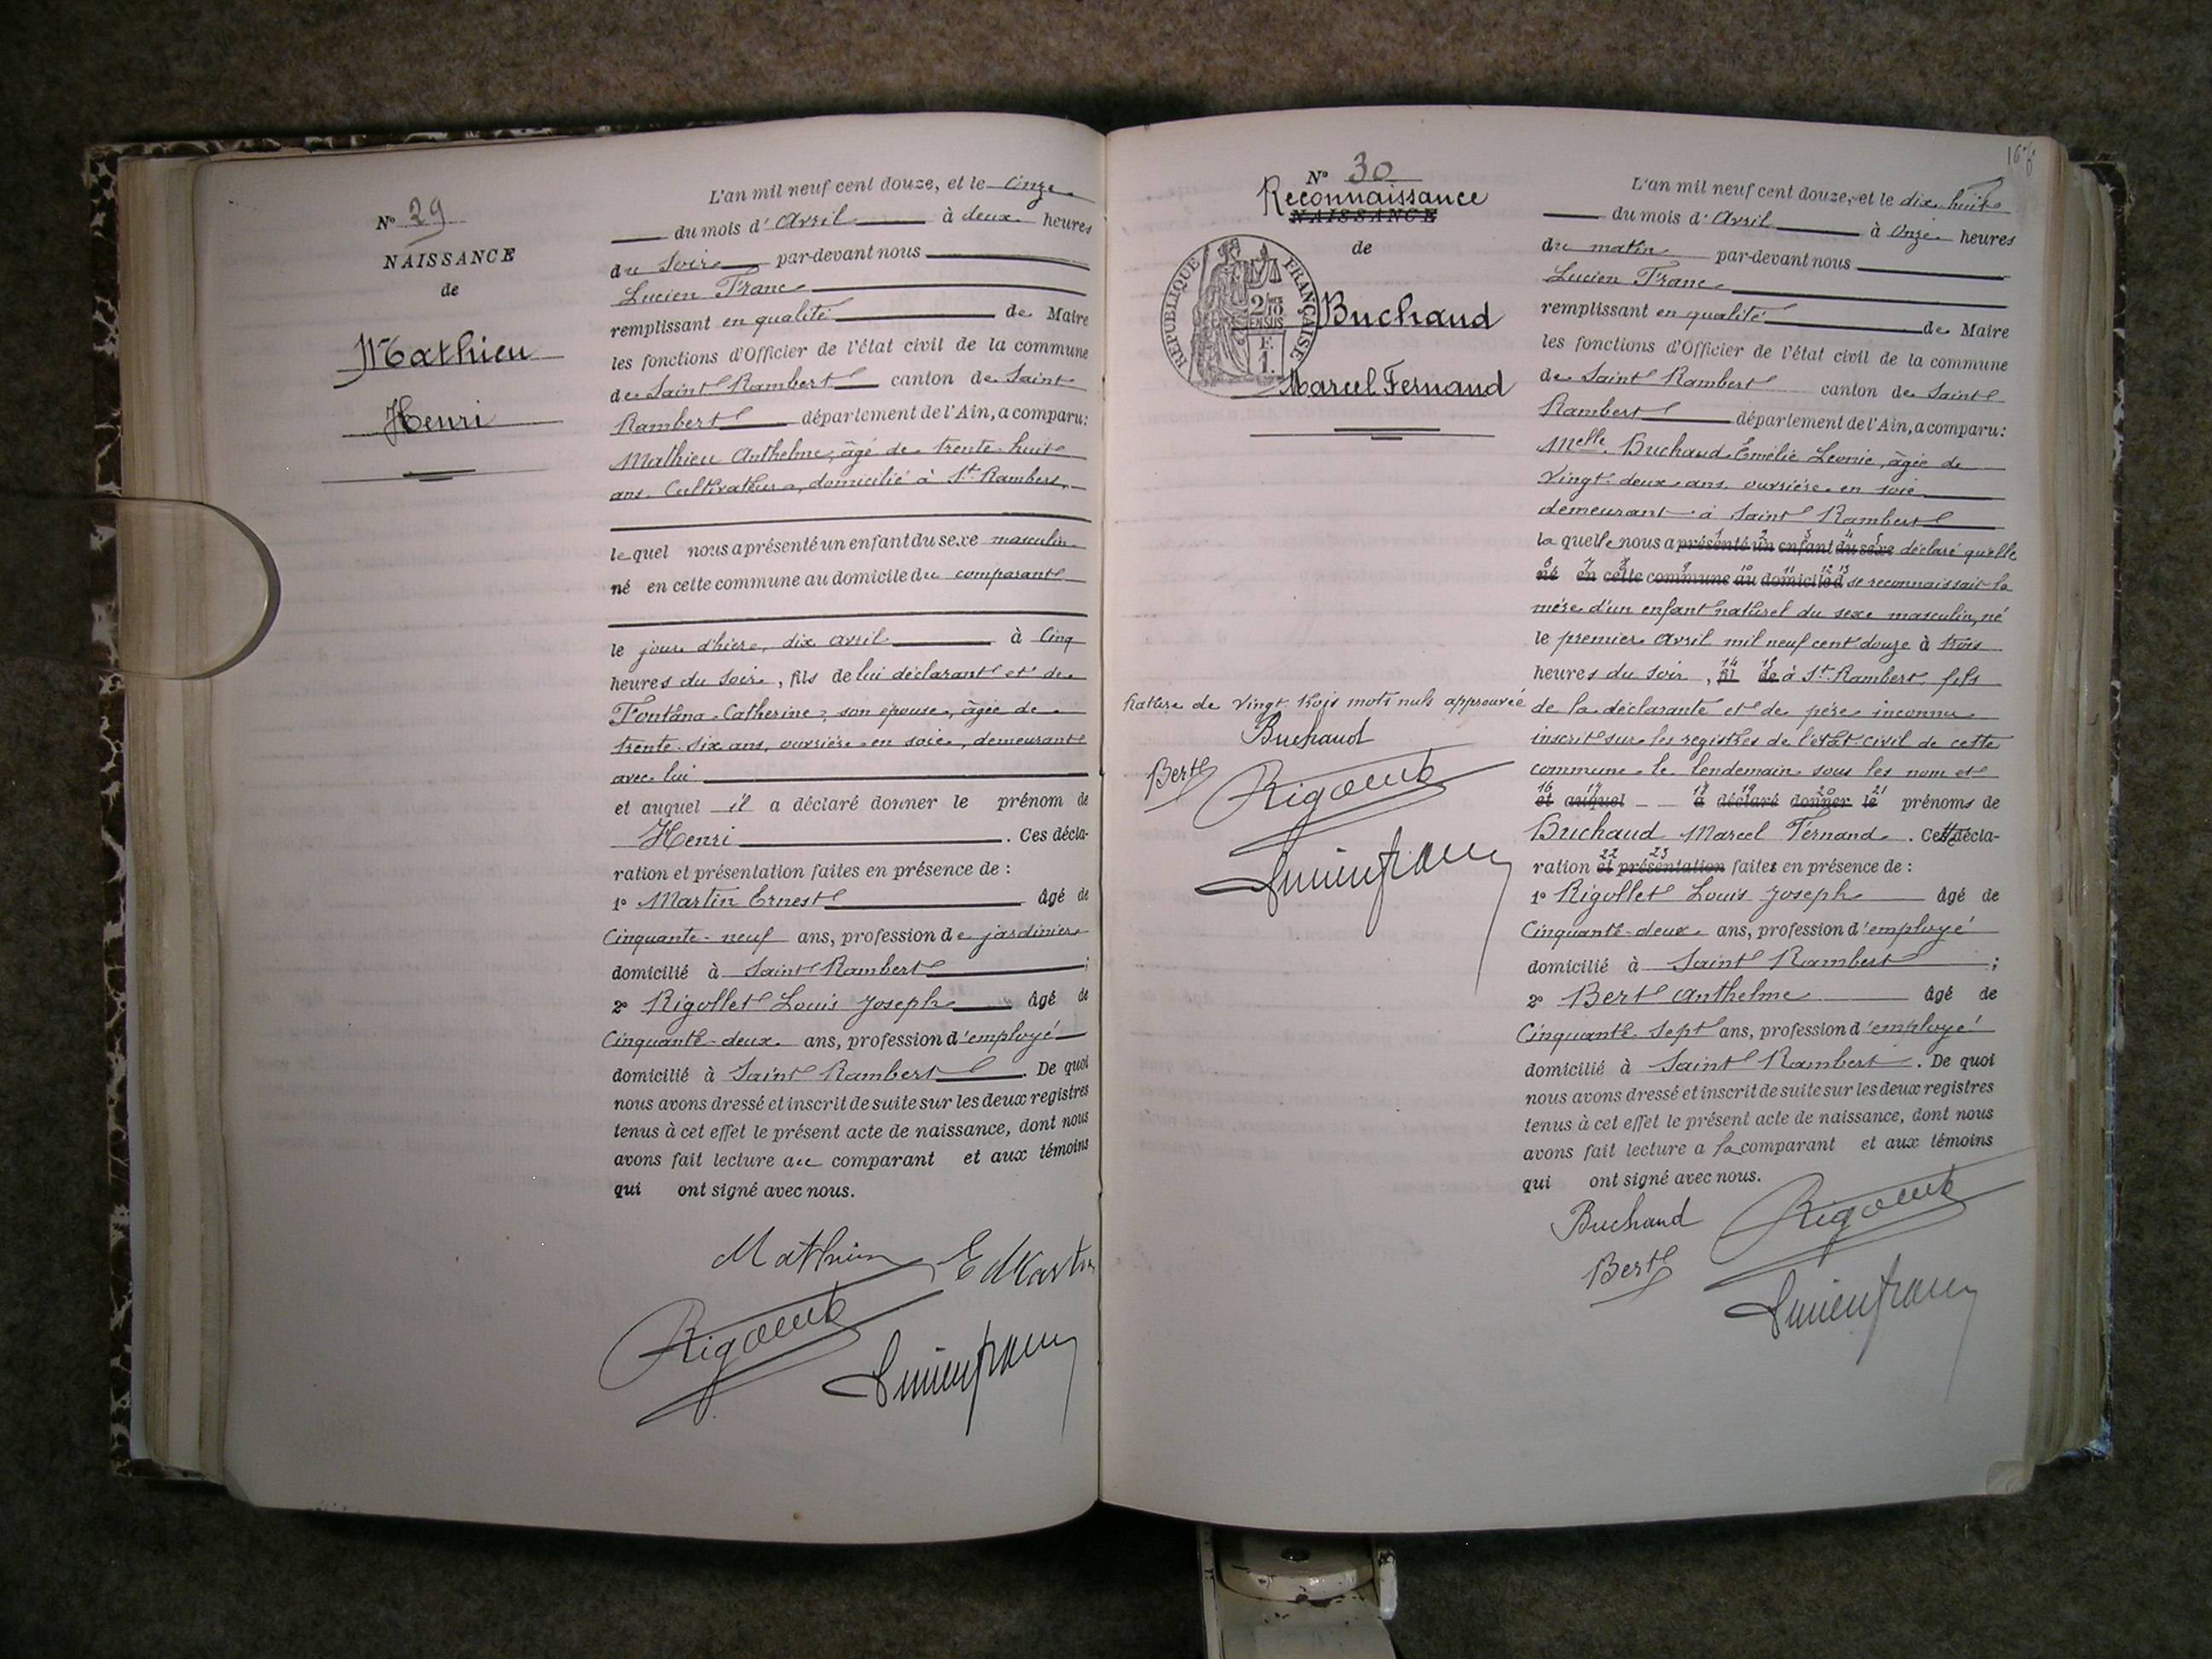 N° 29
NAISSANCE
de
Mathieu
Henri
L'an mil neuf cent douze, et le Onze
du mois d'Avril à deux heures
du Soir par-devant nous
Lucien Franc
remplissant en qualité de Maire
les fonctions d'Officier de l'état civil de la commune
de Saint Rambert canton de Saint
Rambert département de l'Ain, a comparu:
Mathieu Anthelme, âgé de trente-huit
ans, Cultivateur, domicilié à St Rambert,
lequel nous a présenté un enfant du sexe masculin
né en cette commune au domicile du comparant
le jour d'hier, dix avril à Cinq
heures du Soir, fils de lui déclarant et de
Fontana Catherine, son épouse, âgée de
trente-six ans, ouvrière en soie, demeurant
avec lui
et auquel il a déclaré donner le prénom de
Henri . Ces décla-
ration et présentation faites en présence de :
1° Martin Ernest âgé de
Cinquante-neuf ans, profession de jardinier
domicilié à Saint Rambert ;
2° Rigollet Louis Joseph âgé de
Cinquante-deux ans, profession d'employé
domicilié à Saint Rambert . De quoi
nous avons dressé et inscrit de suite sur les deux registres
tenus à cet effet le présent acte de naissance, dont nous
avons fait lecture au comparant et aux témoins
qui ont signé avec nous.
Mathieu E Martin
Rigollet
Lucien Franc
N° 30
Reconnaissance
NAISSANCE
de
RÉPUBLIQUE FRANÇAISE
Buchaud
Marcel Fernand
vingt-trois mots nuls approuvée
Buchaud
Bert
Rigollet
Lucien Franc
L'an mil neuf cent douze, et le dix huit
du mois d'Avril à Onze heures
du matin par-devant nous
Lucien Franc
remplissant en qualité de Maire
les fonctions d'Officier de l'état civil de la commune
de Saint Rambert canton de Saint
Rambert département de l'Ain, a comparu:
Melle Buchaud Emélie Léonie, âgée de
vingt-deux ans, ouvrière en soie
demeurant à Saint Rambert
la quelle nous a présenté un enfant du sexe déclaré qu'elle
né en cette commune au domicile d se reconnaissait la
mère d'un enfant naturel du sexe masculin, né
le premier Avril mil neuf cent douze à trois
heures du Soir , fil de à St Rambert, fils
de la déclarante et de père inconnu
inscrit sur les registres de l'état-civil de cette
commune le lendemain sous les nom et
et auquel a déclaré donner le prénoms de
Buchaud Marcel Fernand . Cette décla-
ration et présentation faite en présence de :
1° Rigollet Louis Joseph âgé de
Cinquante-deux ans, profession d'employé
domicilié à Saint Rambert ;
2° Bert Anthelme âgé de
Cinquante-Sept ans, profession d'employé
domicilié à Saint Rambert . De quoi
nous avons dressé et inscrit de suite sur les deux registres
tenus à cet effet le présent acte de naissance, dont nous
avons fait lecture a la comparant et aux témoins
qui ont signé avec nous.
Buchaud Rigollet
Bert
Lucien Franc